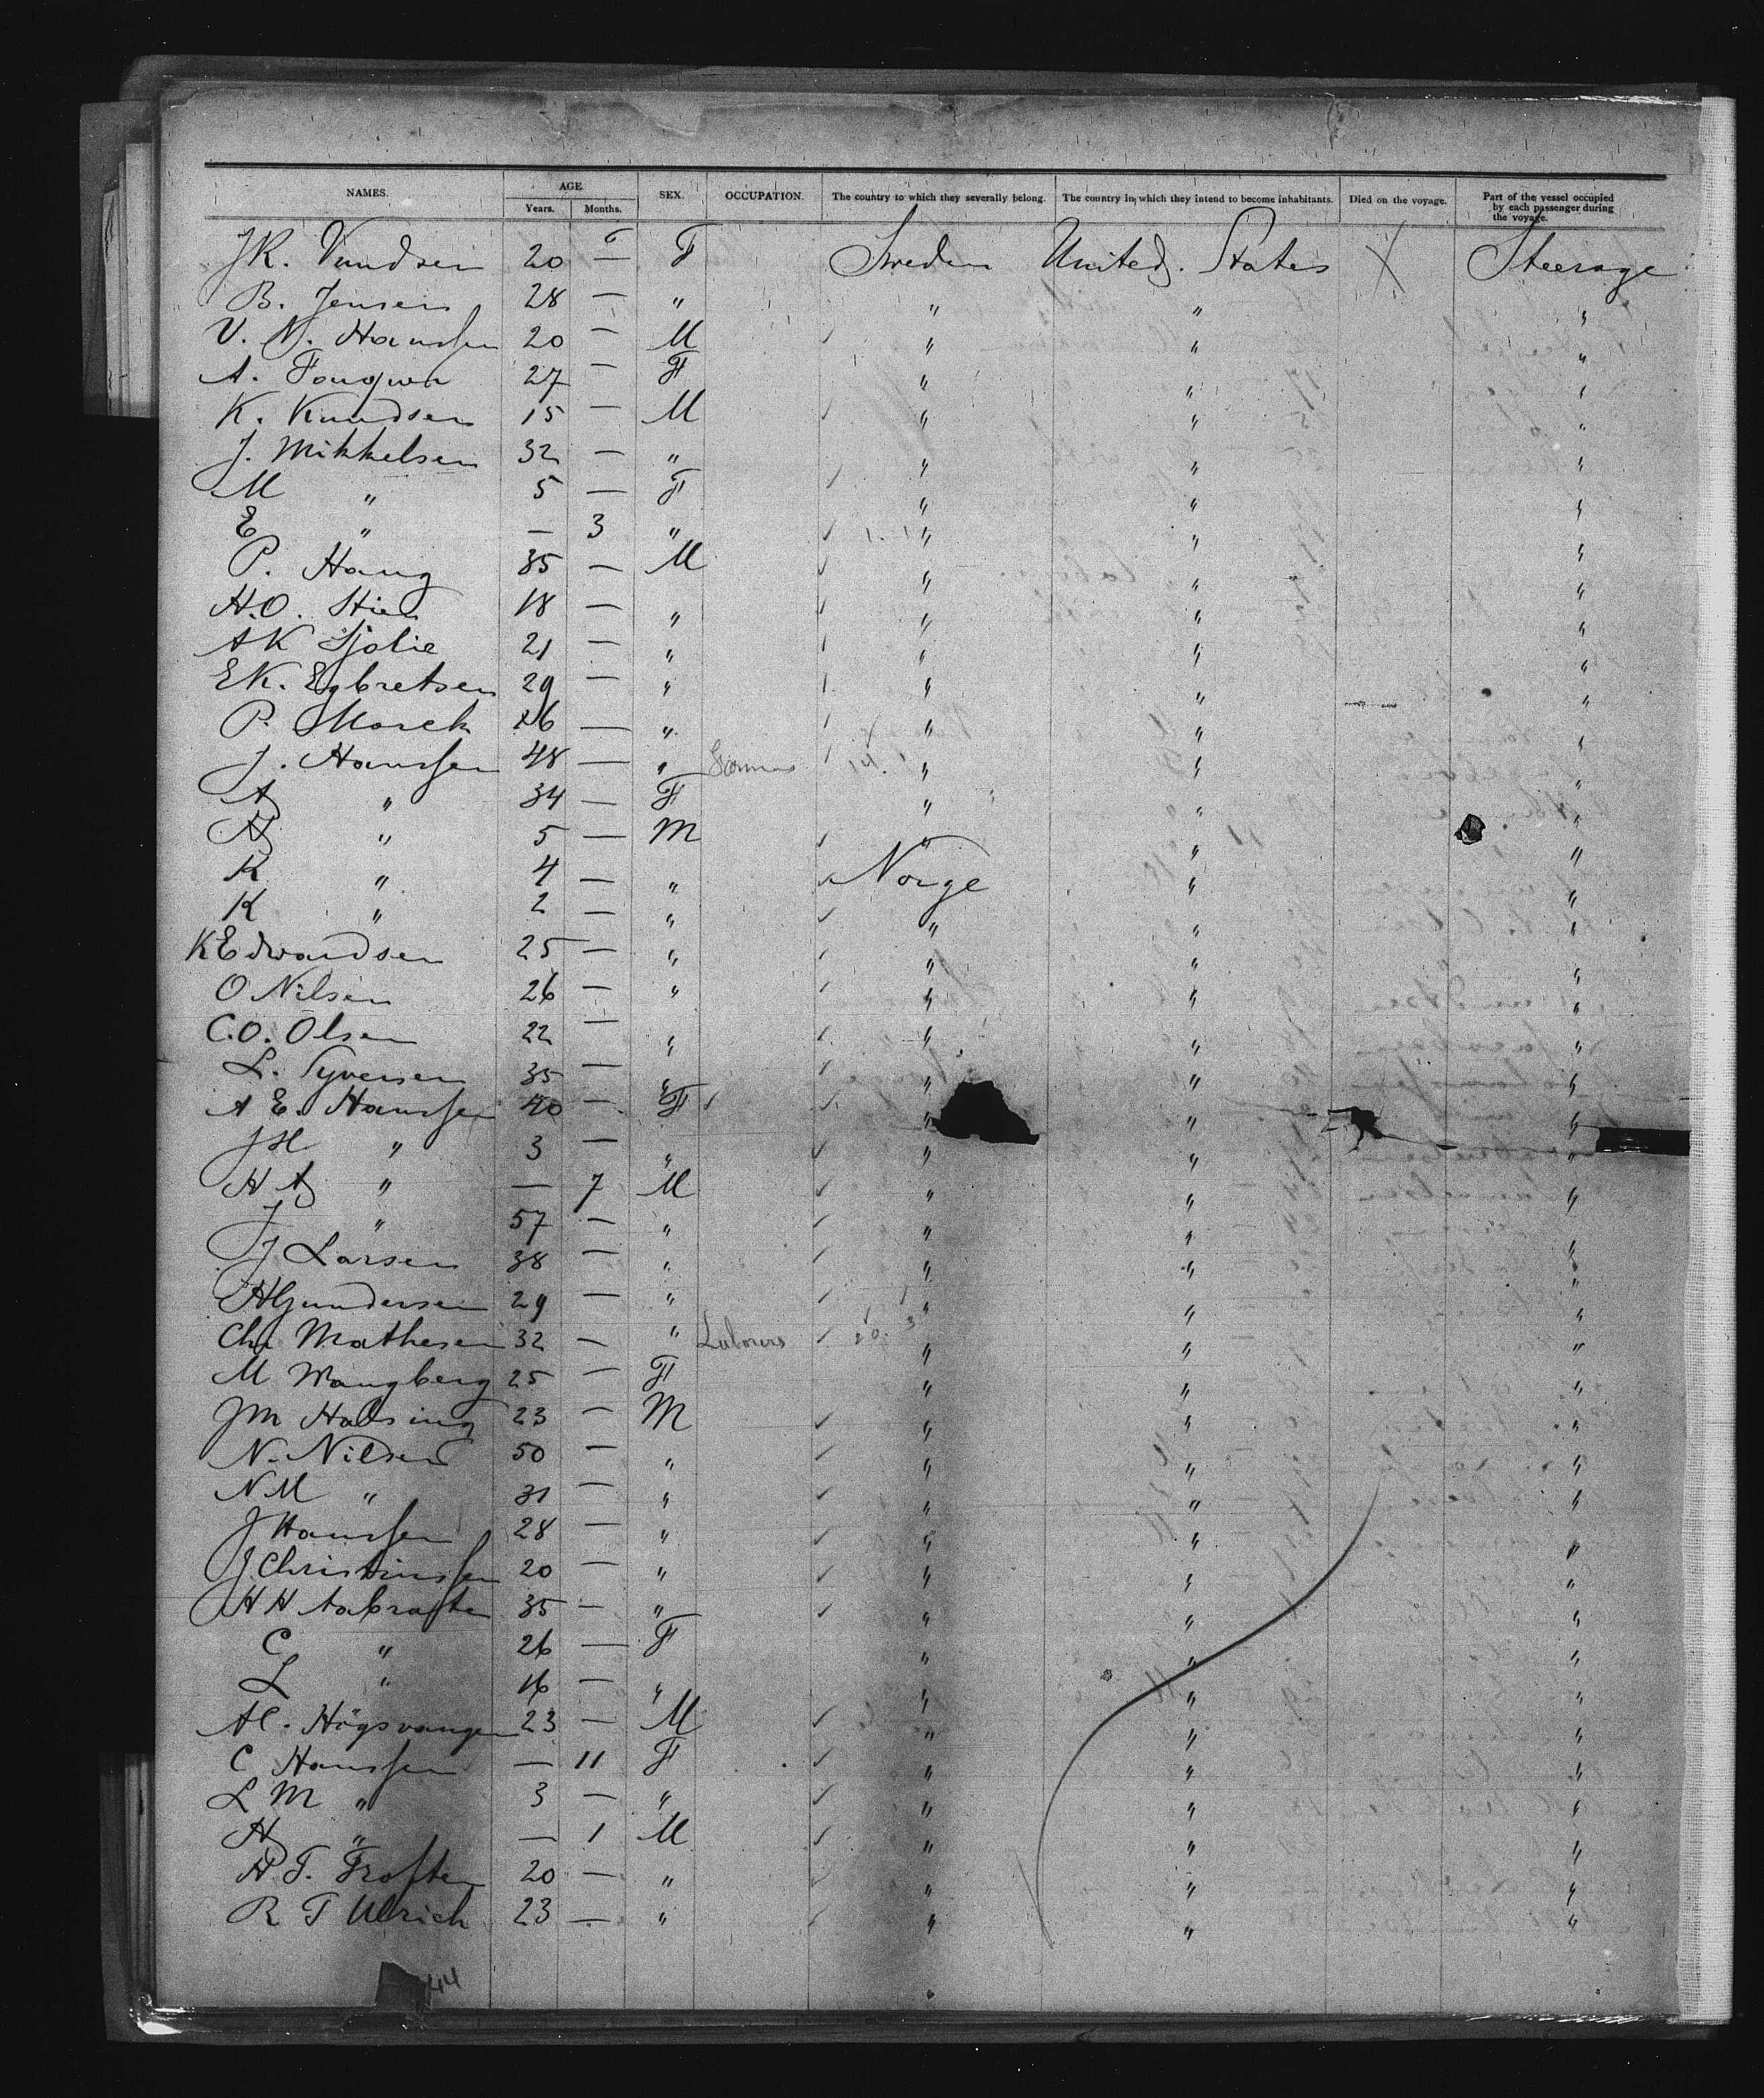 NAMES. AGE. SEX. OCCUPATION. The country to which they severally belong. The country in which they intend to become inhabitants. Died on the voyage. Part of the vessel occupied by each passenger during the voyage.
Years. Months.
J K. 20 — F Sweden United States Steerage
B. Jensen 28 — " " " "
V. N. Hanssen 20 — M " " "
A. 27 — F " " "
K. Knudsen 15 — M " " "
J. Mikkelsen 32 — " " " "
M " 5 — F " " "
E " — 3 " " " "
P. Haug 35 — M " " "
H.O. Stien 18 — " " " "
A K Sjolie 21 — " " " "
E K. Egbretsen 29 — " " " "
P. Morck 26 — " " " "
J. Hanssen 48 — " " " "
A " 34 — F " " "
A " 5 — M " " "
K " 4 — " Norge " "
K " 2 — " " " "
K Edwardsen 25 — " " " "
O Nilsen 26 — " " " "
C.O. Olsen 22 — " " " "
L. Syversen 35 — " " " "
A E. Hanssen 40 — F " " "
J H " 3 — " " " "
H A " — 7 M " " "
J " 57 — " " " "
J Larsen 38 — " " " "
H Gundersen 29 — " " " "
Chr Mathesen 32 — " Laborers " " "
M Wangberg 25 — F " " "
J M Halsing 23 — M " " "
N. Nilsen 50 — " " " "
N M " 31 — " " " "
J Hanssen 28 — " " " "
J Christinssen 20 — " " " "
H H 35 — " " " "
C " 26 — F " " "
L " 16 — " " " "
A C. Högsvangen 23 — M " " "
C Hanssen — 11 F " " "
L M " 3 — " " " "
A " — 1 M " " "
H. T. Troften 20 — " " " "
R T Ulrich 23 — " " " "
44